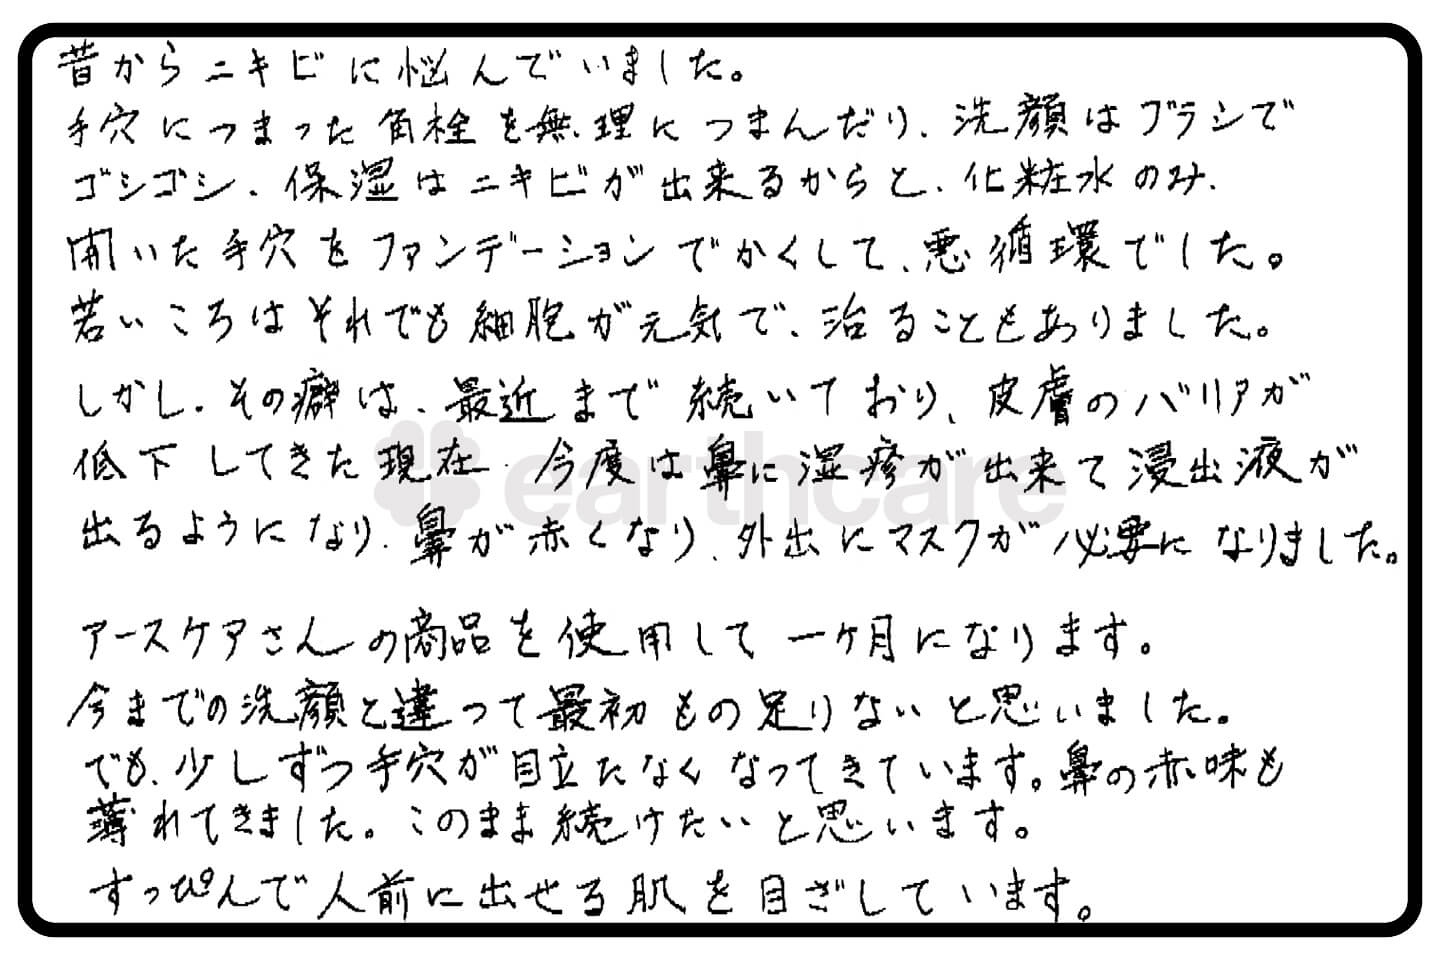 昔からニキビに悩んでいました。
手穴につまった角栓を無理につまんだり、洗顔はブラシで
ゴシゴシ、保湿はニキビが出来るからと、化粧水のみ、
開いた手穴をファンデーションでかくして、悪循環でした。
若いころはそれでも細胞が元気で、治ることもありました。
しかし、その癖は、最近まで続いており、皮膚のバリアが
低下してきた現在、今度は鼻に湿疹が出来て浸出液が
earthcare
出るようになり、鼻が赤くなり、外出にマスクが必要になりました。
アースケアさんの商品を使用して一ケ月になります。
今までの洗顔と違って最初もの足りないと思いました。
でも、少しずつ手穴が目立たなくなってきています。鼻の赤味も
薄れてきました。このまま続けたいと思います。
すっぴんで人前に出せる肌を目ざしています。